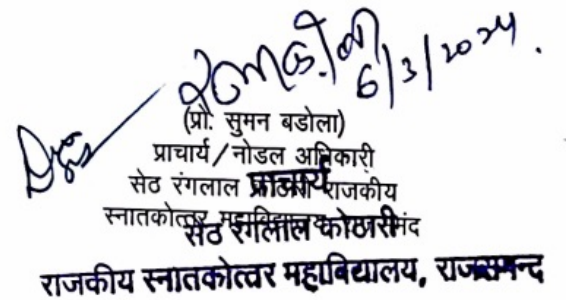 6/3/2024.
(प्रो. सुमन बडोला)
प्राचार्य/नोडल अधिकारी
सेठ रंगलाल कोठारी राजकीय
प्राचार्य
स्नातकोत्तर महाविद्यालय
सेठ रंगलाल कोठारी
राजकीय स्नातकोत्तर महाविद्यालय, राजसमन्द